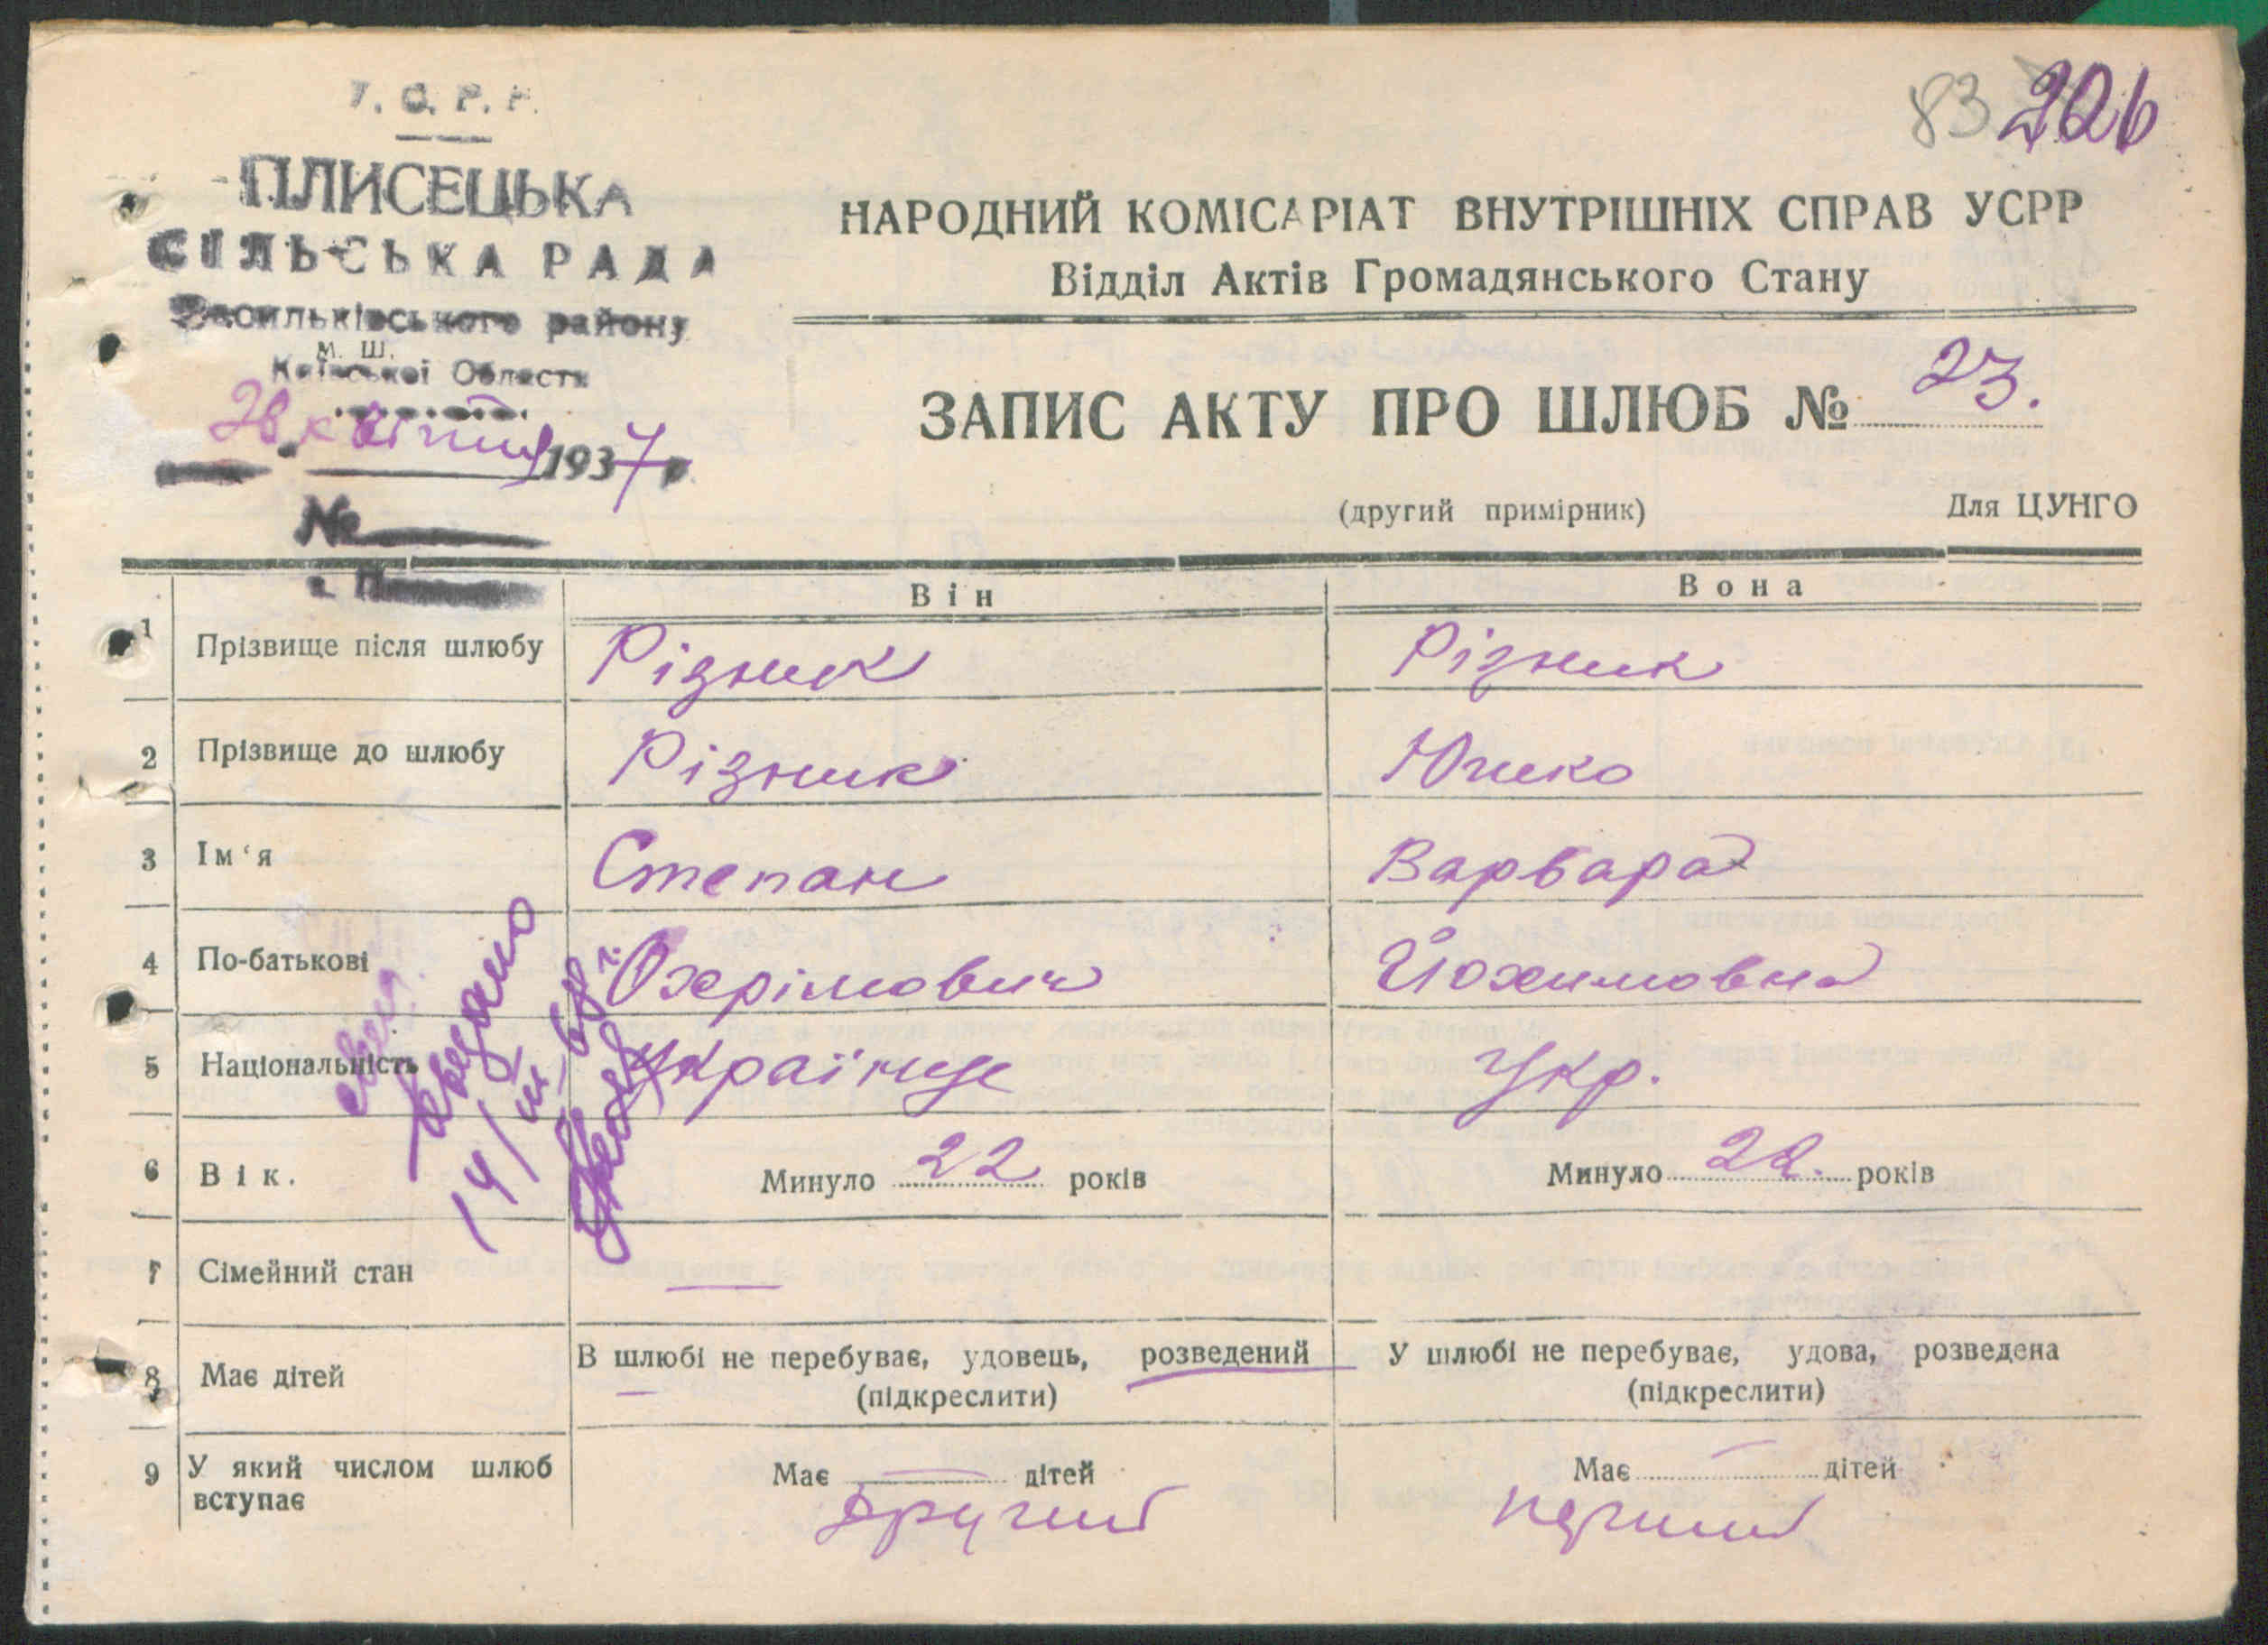 У. С. Р. Р.
ПЛИСЕЦЬКА
СІЛЬСЬКА РАДА
Васильківського району
М. Ш.
Київської Области
28 квітня 1937 р
№
83 206
НАРОДНИЙ КОМІСАРІАТ ВНУТРІШНІХ СПРАВ УСРР
Відділ Актів Громадянського Стану
ЗАПИС АКТУ ПРО ШЛЮБ № 23.
(другий примірник) Для ЦУНГО
Він Вона
1 Прізвище після шлюбу Різник Різник
2 Прізвище до шлюбу Різник
3 Ім‘я Степан Варвара
4 По-батькові Охрімович Йохимовна
5 Національність Українце Укр.
6 Вік. Минуло 22 років Минуло 22. років
7 Сімейний стан
8 Має дітей В шлюбі не перебуває, удовець, розведений У шлюбі не перебуває, удова, розведена
(підкреслити) (підкреслити)
9 У який числом шлюб вступає Має дітей Має дітей
другий перший